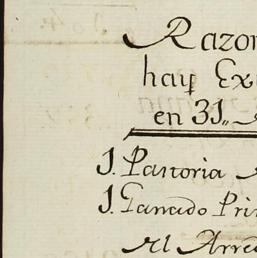 Razon
hay Ex
en 31,,
1. Pastoria
1. Ganado Pri
el Arre